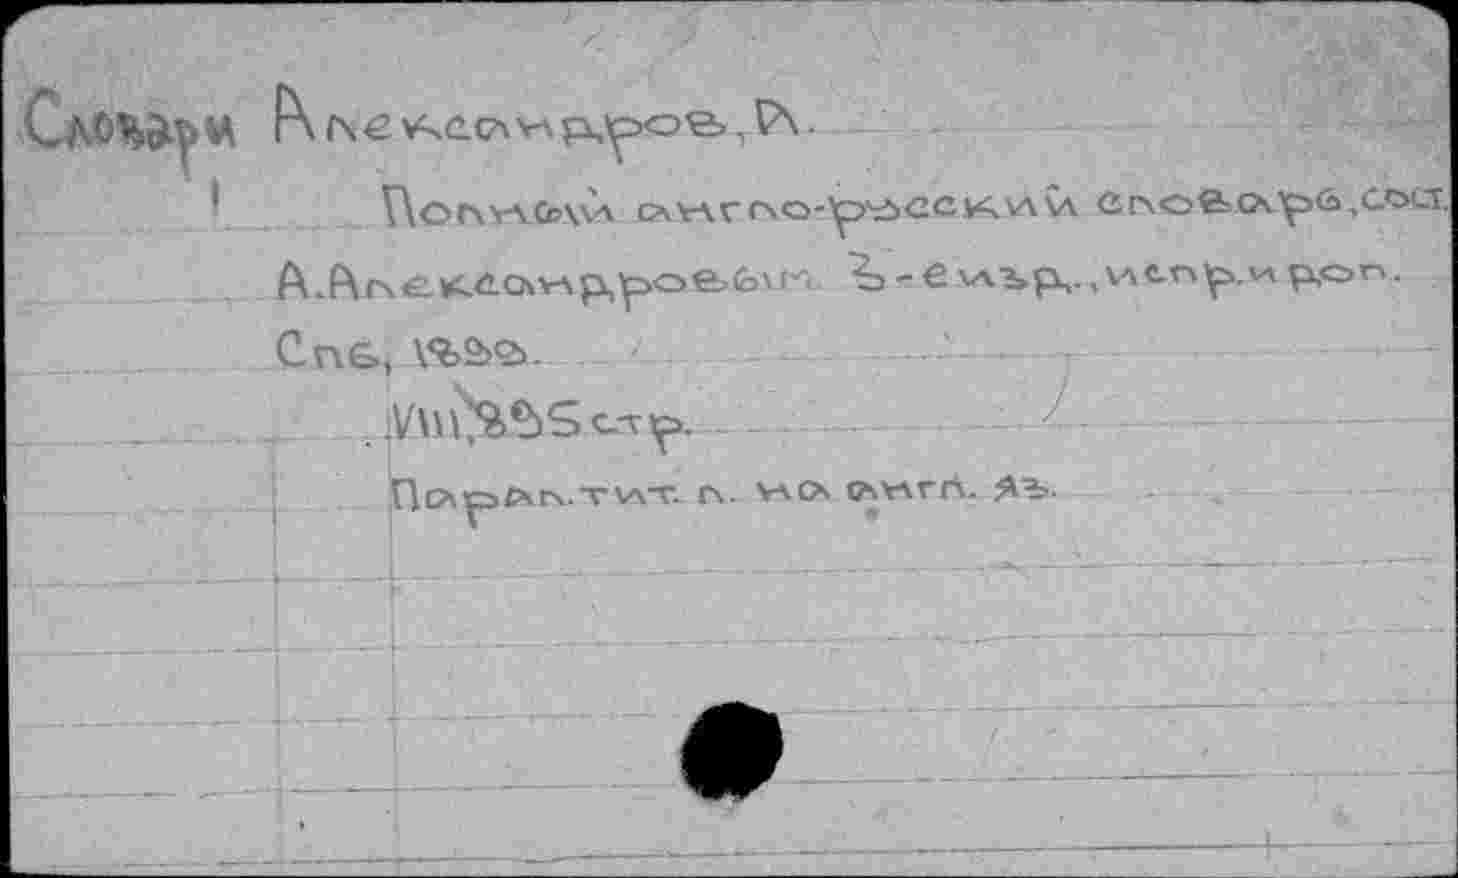 Словари Александров, А.
Полный англо-русский словарь, сост.
А. Александровым. 3-е изд., испр. и доп.
Спб,
стр.
Паралл. тит. л. на англ. яз.